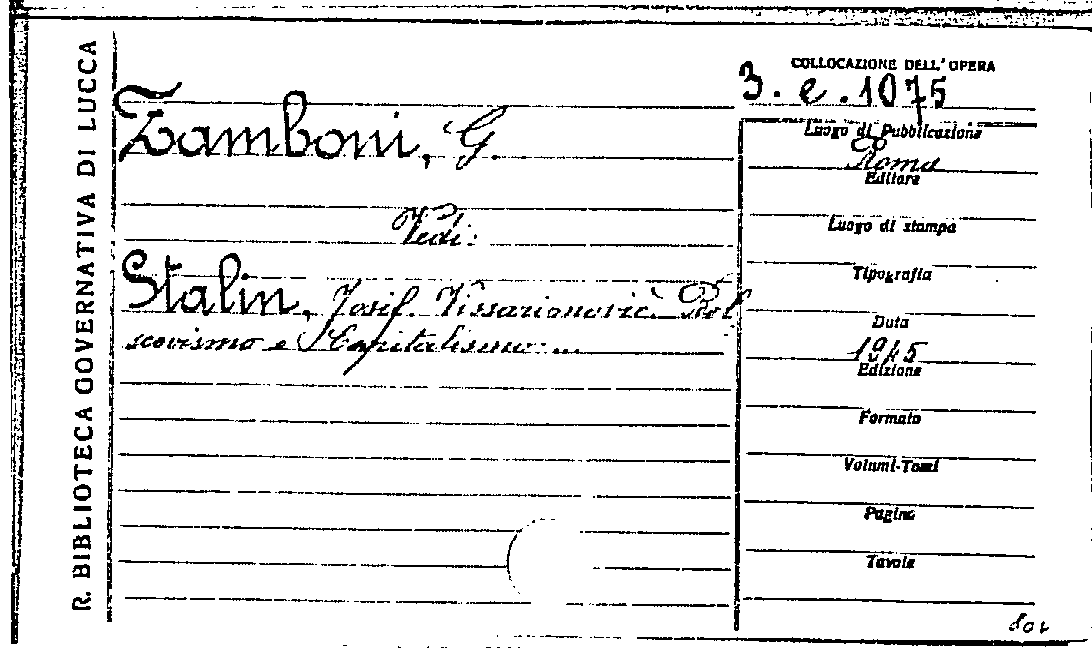 R. BIBLIOTECA GOVERNATIVA DI LUCCA
COLLOCAZIONE DELL'OPERA
3. e. 1075
Zamboni, G.
Vedi:
Stalin, Josif Vissarionovič. Bol
scevismo e Capitalismo...
Luogo di Pubblicazione
Roma
Editore
Luogo di stampa
Tipografia
Data
1945
Edizione
Formato
Volumi-Tomi
Pagine
Tavole